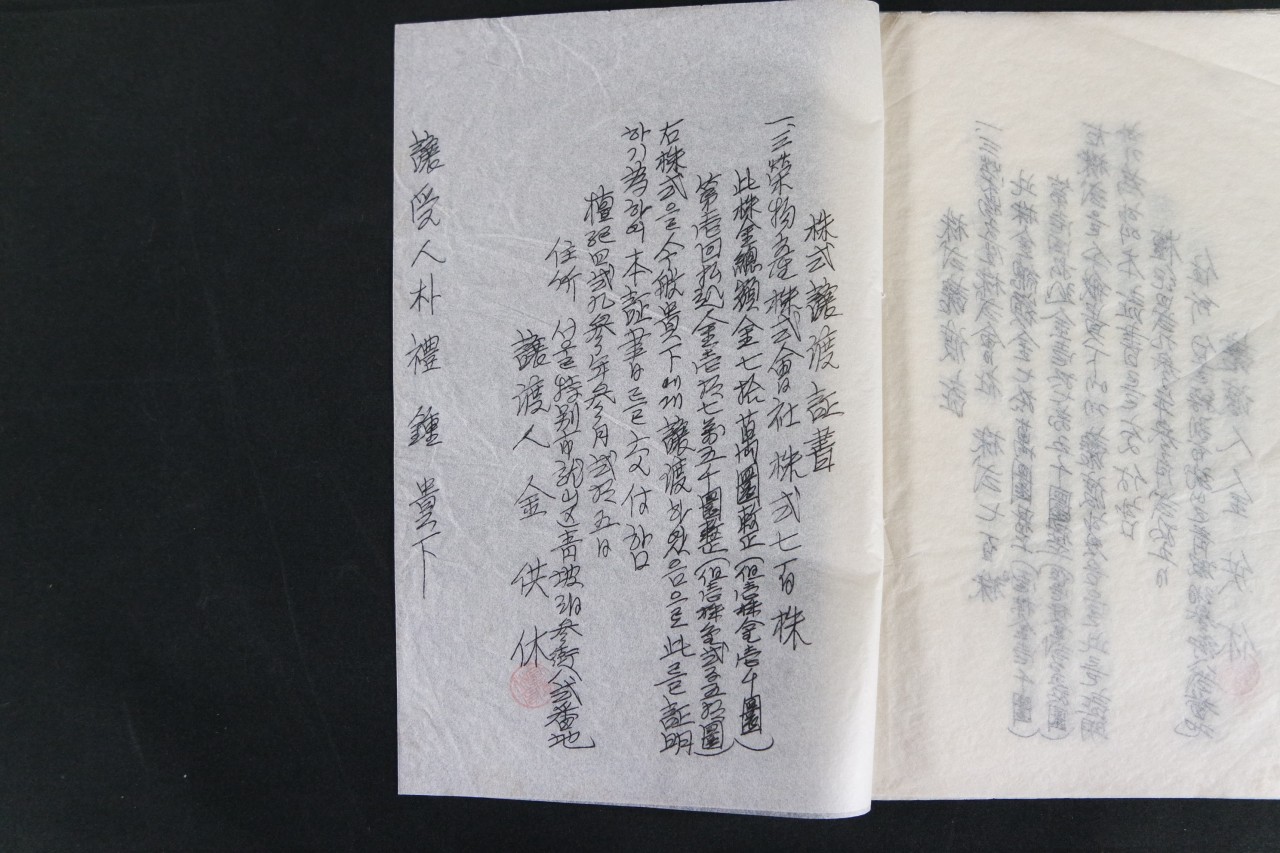 株式讓渡証書
一、三榮物産株式會社 株式七百株
此株金總額金七拾萬圜整(但壱株金壱千圜)
第壱回払込金壱拾七萬五千圜整(但壱株金弐百五拾圜)
右株式을 今般 貴下에게 讓渡하였음으로 此를 証明
하기 爲하여 本証書를 交付함
檀紀四弐九参年参月弐拾五日
住所 서울特別市龍山区靑坡洞参街八弐番地
讓渡人 金 供 休
讓受人 朴禮鍾 貴下